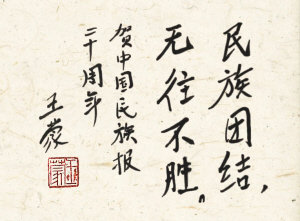 民族团结，
无往不胜。
贺中国民族报
二十周年
王蒙
王蒙